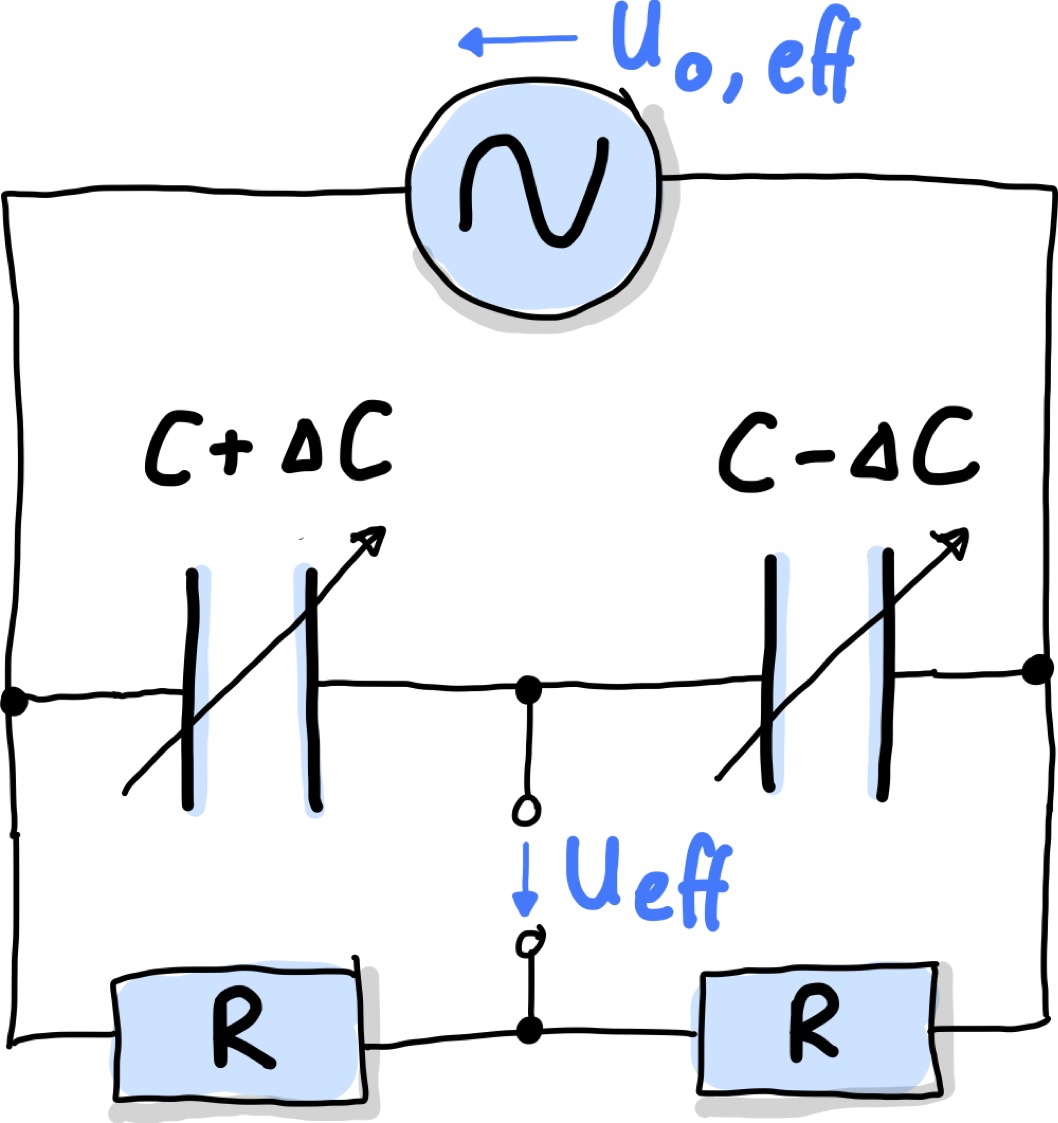 U₀,eff
C+ΔC
C-ΔC
Ueff
R
R